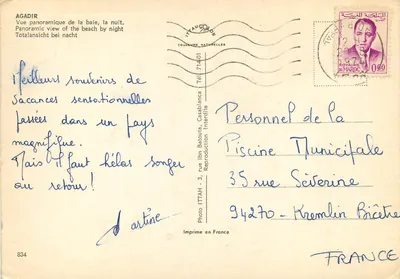 AGADIR
Vue panoramique de la baie, la nuit.
Panoramic view of the beach by night
Totalansicht bei nacht
COULEURS NATURELLES
MAROC
0,80
Meilleurs souvenirs de
vacances sensationnelles
passées dans un pays
magnifique.
Mais il faut hélas songer
au retour !
Martine
Photo ITTAH - 3, rue Ibn Batouta, Casablanca - Tél. 714-01
Reproduction Interdite
Personnel de la
Piscine Municipale
35 rue Séverine
94270 - Kremlin Bicêtre
FRANCE
834
Imprimé en France